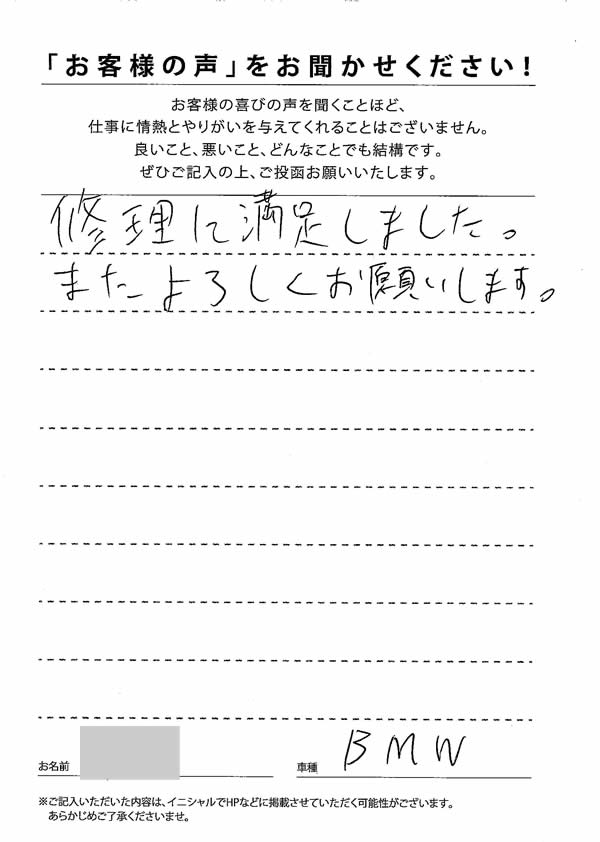 「お客様の声」をお聞かせください!
お客様の喜びの声を聞くことほど、
仕事に情熱とやりがいを与えてくれることはございません。
良いこと、悪いこと、どんなことでも結構です。
ぜひご記入の上、ご投函お願いいたします。
修理に満足しました。
またよろしくお願いします。
お名前
車種 BMW
※ご記入いただいた内容は、イニシャルでHPなどに掲載させていただく可能性がございます。
あらかじめご了承くださいませ。